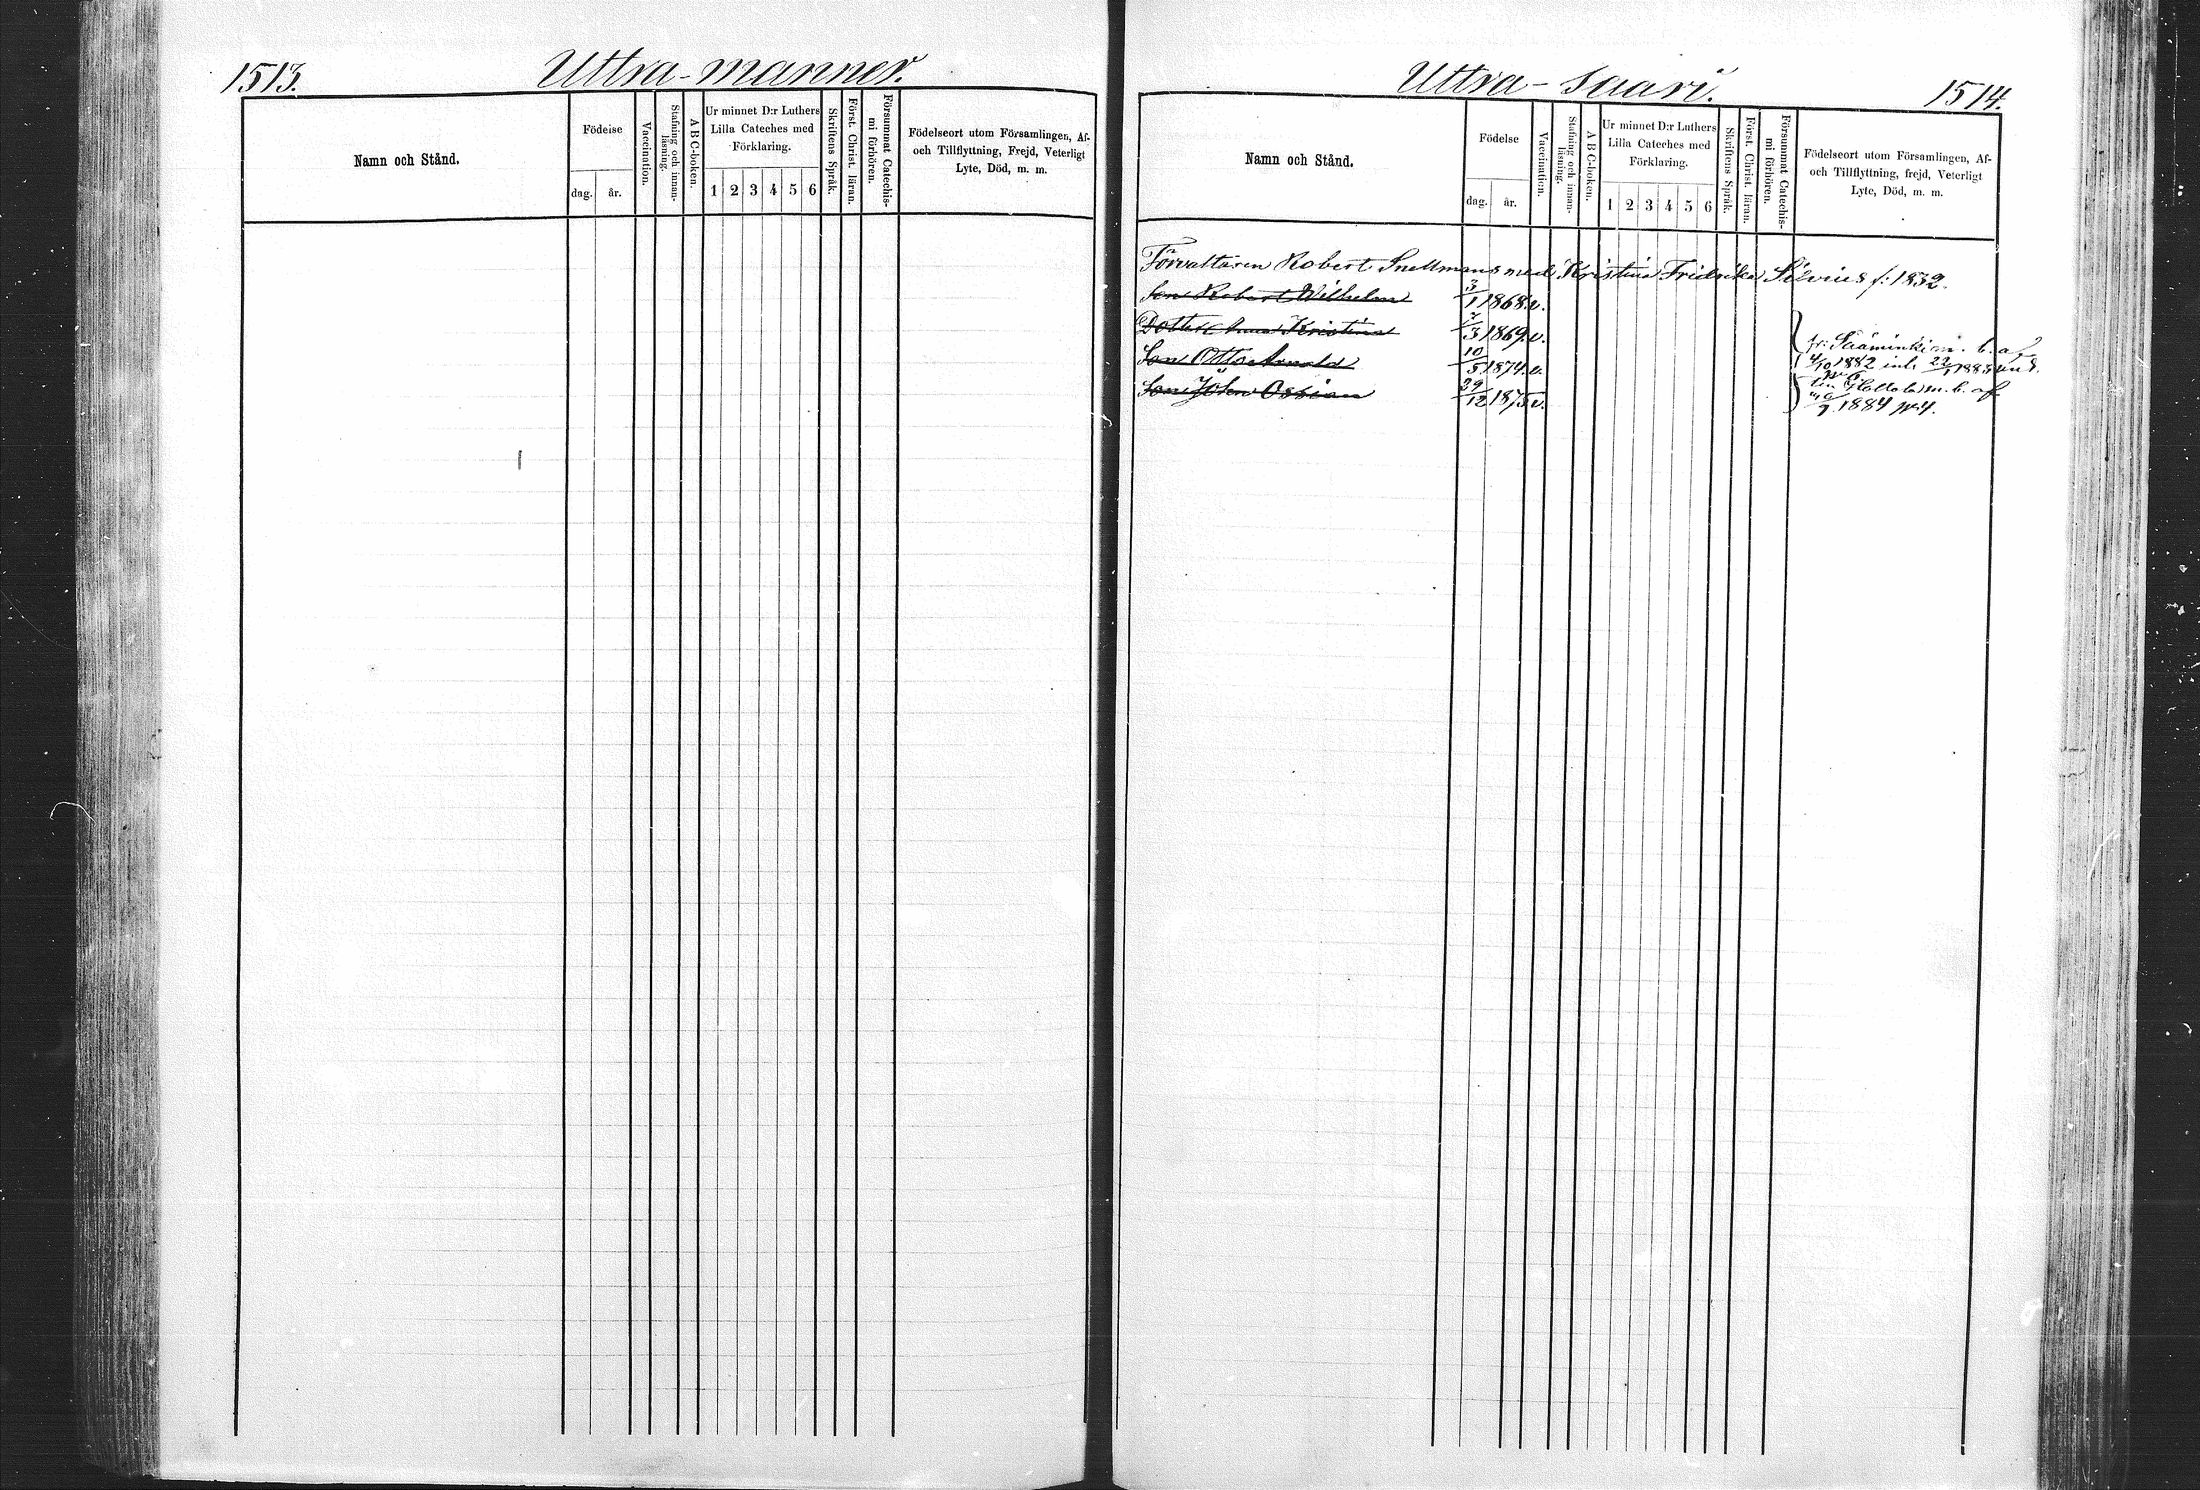 1513. Uttra-manner.
Namn och Stånd.
Födelse
dag. år.
Vaccination.
Stafning och innan-
läsning.
A B C-boken.
Ur minnet D:r Luthers
Lilla Cateches med
Förklaring.
1 2 3 4 5 6
Skriftens Språk.
Först. Christ. läran.
Försummat Catechis-
mi förhören.
Födelseort utom Församlingen, Af-
och Tillflyttning, Frejd, Veterligt
Lyte, Död, m. m.
Uttra-saari. 1514.
Namn och Stånd.
Födelse
dag. år.
Vaccination.
Stafning och innan-
läsning.
A B C-boken.
Ur minnet D:r Luthers
Lilla Cateches med
Förklaring.
1 2 3 4 5 6
Skriftens Språk.
Först. Christ. läran.
Försummat Catechis-
mi förhören.
Födelseort utom Församlingen, Af-
och Tillflyttning, frejd, Veterligt
Lyte, Död, m. m.
Förvaltaren Robert Snellmans med Kristina Fridrika Silvius f: 1832.
Son Robert Wilhelm 3/1 1868. v.
Dotter Anna Kristina 7/3 1869. v.
Son Otto Arnold 10/5 1874. v.
Son John Ossian 29/12 1875 v.
fr. Sääminki m. b. af
4/10 1882 inl. 22/1 1883 und.
till Hollola m. b. af
1884 No 4.